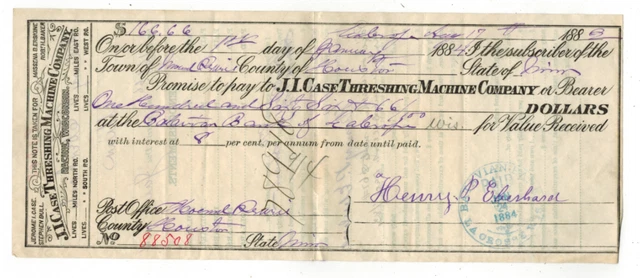 $166.66 Dec 17th 1883
On or before the 1st day of January 1884 I the subscriber of the
Town of Mound Prairie County of Houston State of Minn
Promise to pay to J.I. CASE THRESHING MACHINE COMPANY or Bearer
One Hundred and Sixty Six & 66/100 DOLLARS
at the Batavian Bank of La Crosse Wis. for Value Received
with interest at 8 per cent, per annum from date until paid.
Henry P Eberhard
Post Office Mound Prairie
County Houston
No 88508 State Minn
JEROME I. CASE. MASSENA B. ERSKINE
STEPHEN BULL. ROBT H. BAKER
THIS NOTE IS TAKEN FOR
J.I. CASE THRESHING MACHINE COMPANY,
RACINE, WISCONSIN.
LIVES MILES EAST RO. WEST RO.
LIVES MILES NORTH RO. SOUTH RO.
1884
LA CROSSE